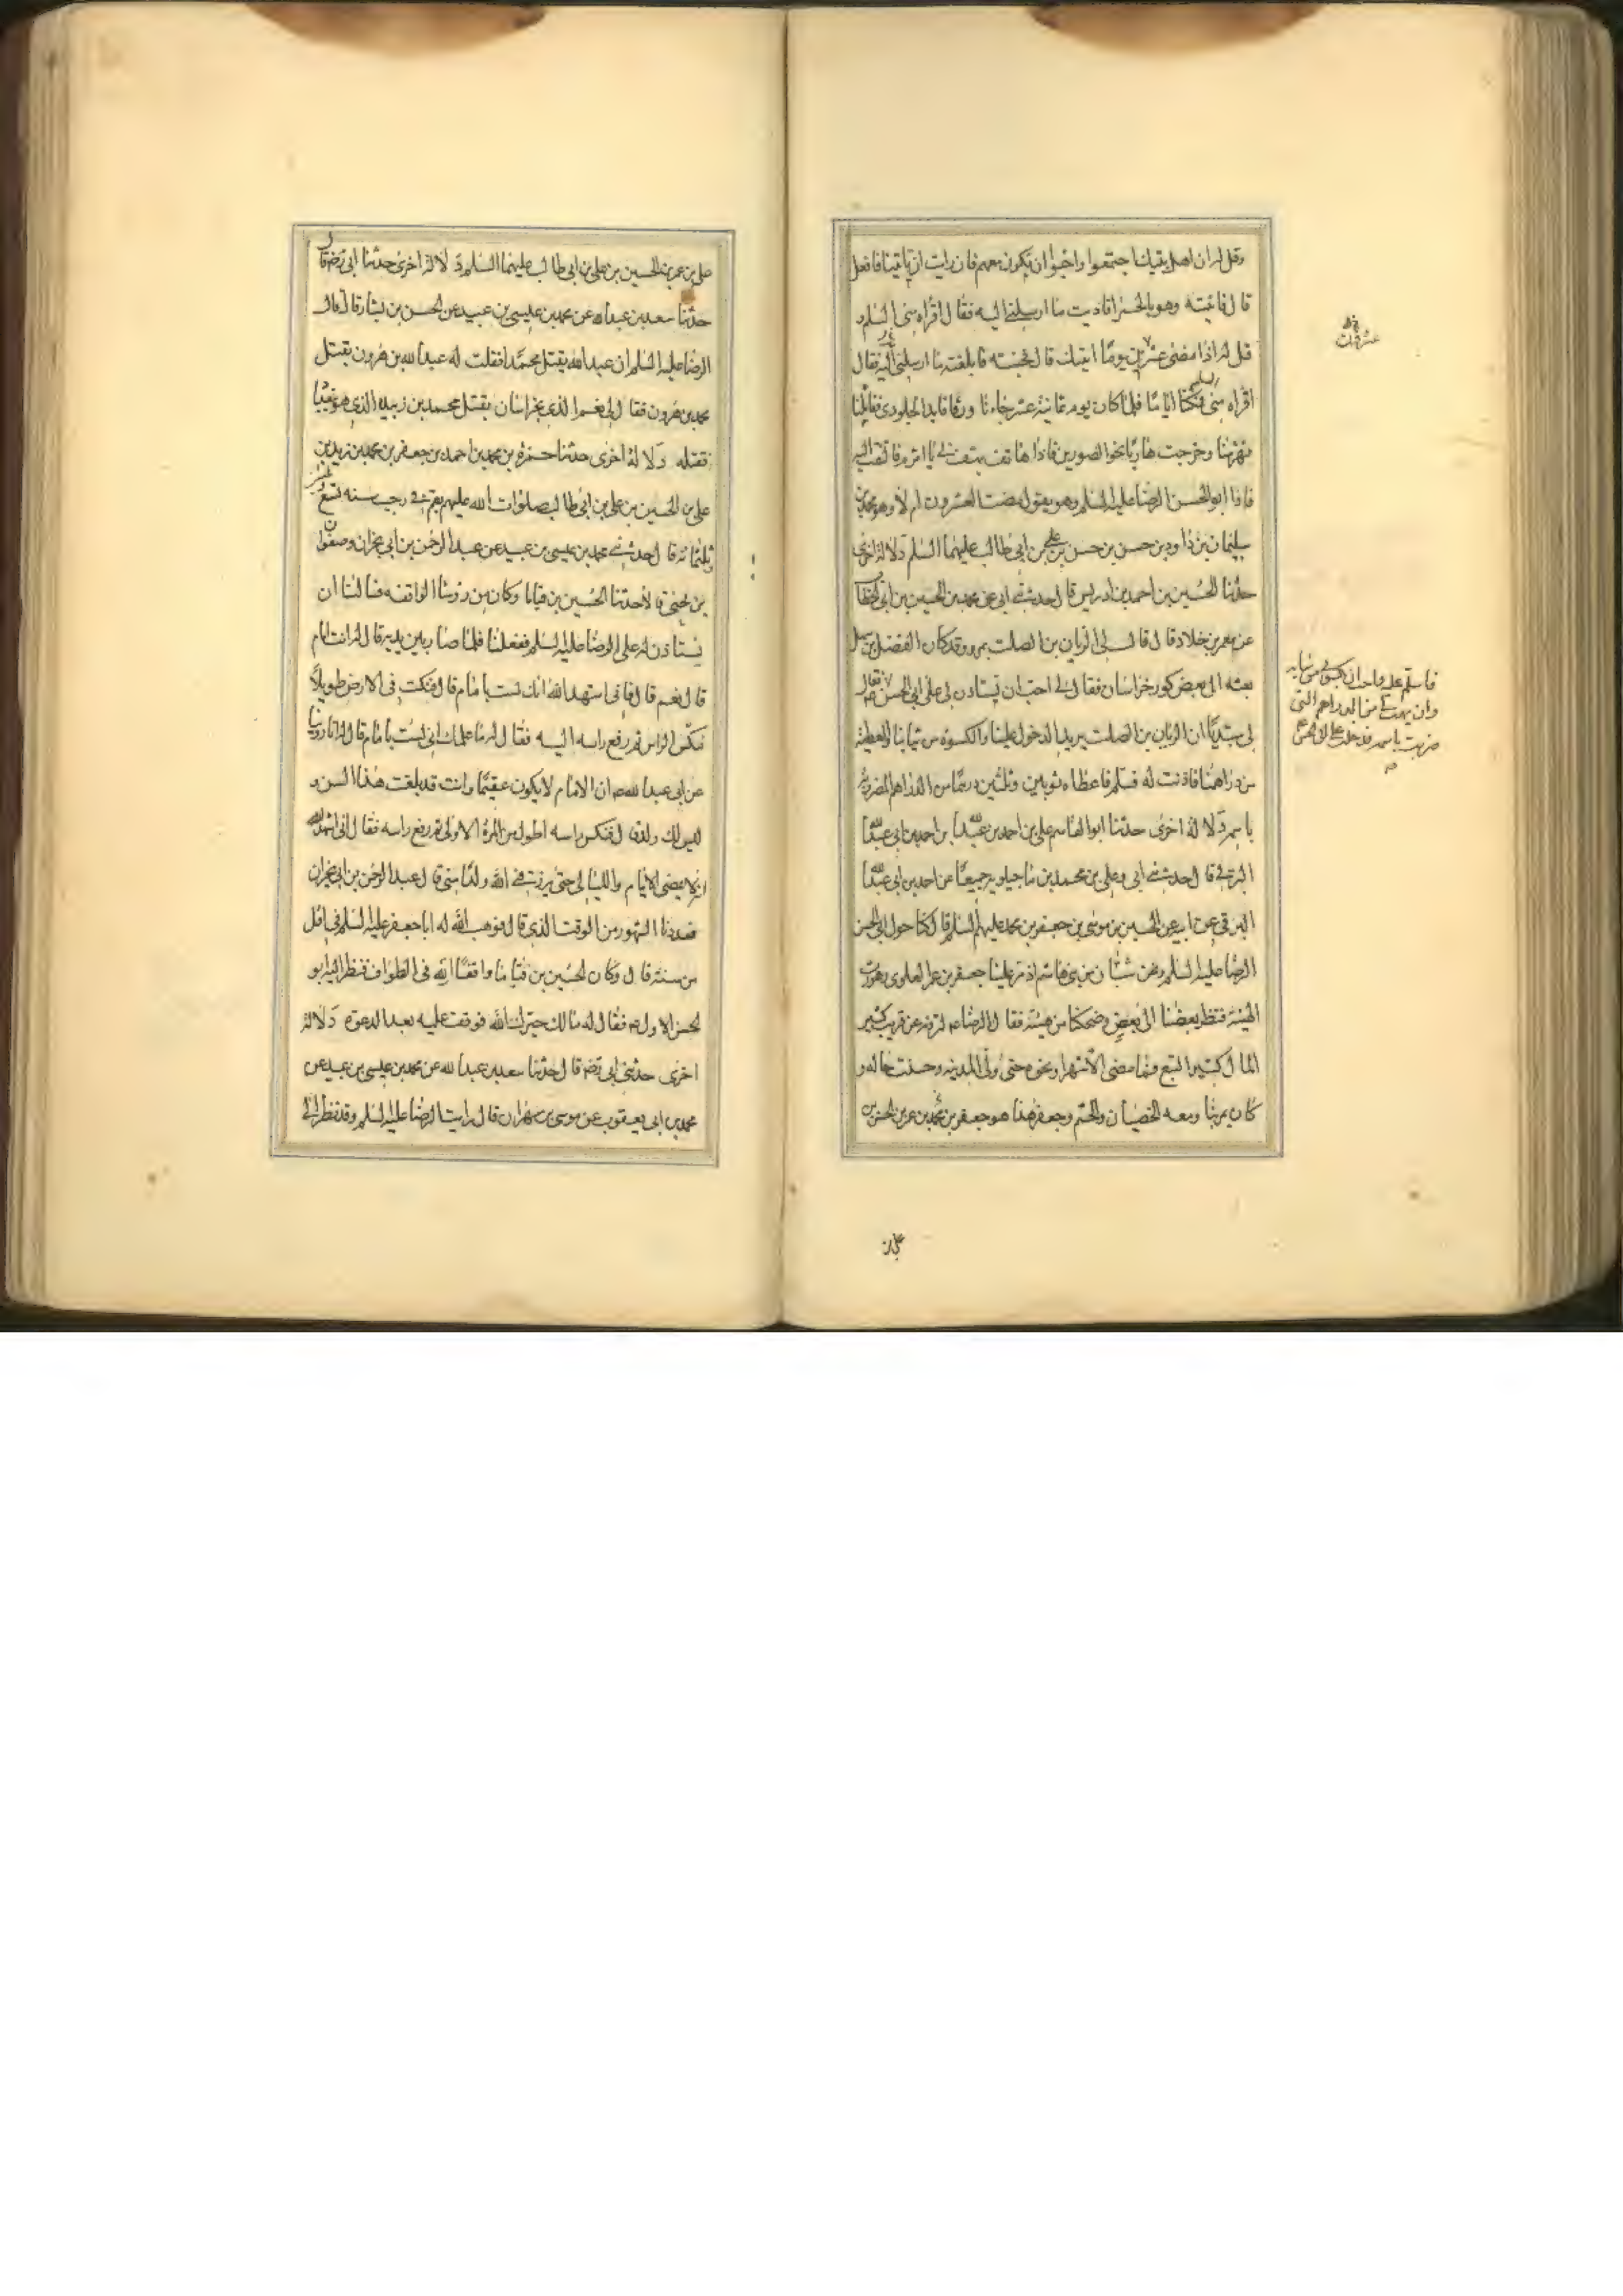 وقل له ان اهل بيتك اجتمعوا واحبوا ان تكون معهم فان رايت ان تاتينا فافعل
قال فاتيته وهو بالحمراء فاديت ما ارسلني اليه فقال اقراه مني السلم و
قل له اذا مضى عشرين يوما اتيتك قال فجئته فابلغته ما ارسلني اليه فقال
اقراه مني السلم فمكثنا اياما فلما كان يوم ثمانية عشر جاءنا ورقا قايد الجلودي فقاتلنا
فهزمنا وخرجت هاربا نحو الصورين فاذا هاتف يهتف بي يا اثرم فالتفت اليه
فاذا ابو الحسن الرضا عليه السلم وهو يقول مضت العشرون ام لا وهو محمد بن
سليمان بن داود بن حسن بن حسن بن علي بن ابي طالب عليهما السلم دلالة اخرى
حدثنا الحسين بن احمد بن ادريس قال حدثني ابي عن محمد بن الحسين بن ابي الخطاب
عن معمر بن خلاد قال قال لي الريان بن الصلت بمرو وقد كان الفضل بن سهل
بعثه الى بعض كور خراسان فقال لي احب ان تستاذن لي على ابي الحسن فقال
لي مبتديا ان الريان بن الصلت يريد الدخول علينا والكسوة من ثيابنا والعطية
من دراهمنا فاذنت له فسلم فاعطاه ثوبين وثلثين درهما من الدراهم المضروبة
باسمه دلالة اخرى حدثنا ابو القاسم علي بن احمد بن عبد الله بن احمد بن ابي عبد الله
البرقي قال حدثني ابي وعلي بن محمد بن ماجيلويه جميعا عن احمد بن ابي عبد الله
البرقي عن ابيه عن الحسين بن موسى بن جعفر بن محمد عليهم السلم قال كنا حول ابي الحسن
الرضا عليه السلم ونحن شبان من بني هاشم اذ مر علينا جعفر بن عمر العلوي وهو رث
الهيئة فنظر بعضنا الى بعض وضحكنا من هيئته فقال الرضا ع لترونه عن قريب كثير
المال كثير التبع فما مضى الا شهر او نحوه حتى ولي المدينة وحسنت حاله و
كان يمر بنا ومعه الخصيان والحشم وجعفر هذا هو جعفر بن محمد بن عمر بن الحسن بن
عشرون
فاسلم عليه واحب ان يكسوني من ثيابه
وان يهب لي من الدراهم التي
ضربت باسمه فدخلت على ابي الحسن
علي بن
علي بن عمر بن الحسين بن علي بن ابي طالب عليهما السلم دلالة اخرى حدثنا ابي رضه قال
حدثنا سعد بن عبد الله عن محمد بن عيسى بن عبيد عن الحسن بن بشار قال قال
الرضا عليه السلم ان عبد الله يقتل محمدا فقلت له عبد الله بن هرون يقتل
محمد بن هرون فقال لي نعم الذي بخراسان يقتل محمد بن زبيدة الذي هو ببغداد
فقتله دلالة اخرى حدثنا حمزة بن محمد بن احمد بن جعفر بن محمد بن زيد بن
علي بن الحسين بن علي بن ابي طالب صلوات الله عليهم بقم في رجب سنه تسع
وثلثمائه قال حدثني محمد بن عيسى بن عبيد عن عبد الرحمن بن ابي نجران وصفوان
بن يحيى قالا حدثنا الحسين بن قياما وكان من رؤسا الواقفه فسالنا ان
نستاذن له على الرضا عليه السلم ففعلنا فلما صار بين يديه قال له انت امام
قال نعم قال فاني اشهد الله انك لست بامام قال فنكت في الارض طويلا
منكس الراس ثم رفع راسه اليه فقال له ما علمك اني لست بامام قال انا روينا
عن ابي عبد الله ع ان الامام لا يكون عقيما وانت قد بلغت هذا السن و
ليس لك ولد قال فنكس راسه اطول من المرة الاولى ثم رفع راسه فقال اني اشهد الله
انه لا يمضى الايام والليالي حتى يرزقني الله ولدا مني قال عبد الرحمن بن ابي نجران
فعددنا الشهور من الوقت الذي قال فوهب الله له ابا جعفر عليه السلم في اقل
من سنة قال وكان الحسين بن قياما واقفا في الطواف فنظر اليه ابو
الحسن الاول ع فقال له مالك حيرك الله فوقف عليه بعد الدعوه دلالة
اخرى حدثني ابي رضه قال حدثنا سعد بن عبد الله عن محمد بن عيسى بن عبيد عن
محمد بن ابي يعقوب عن موسى بن مهران قال رايت الرضا عليه السلم وقد نظر الى